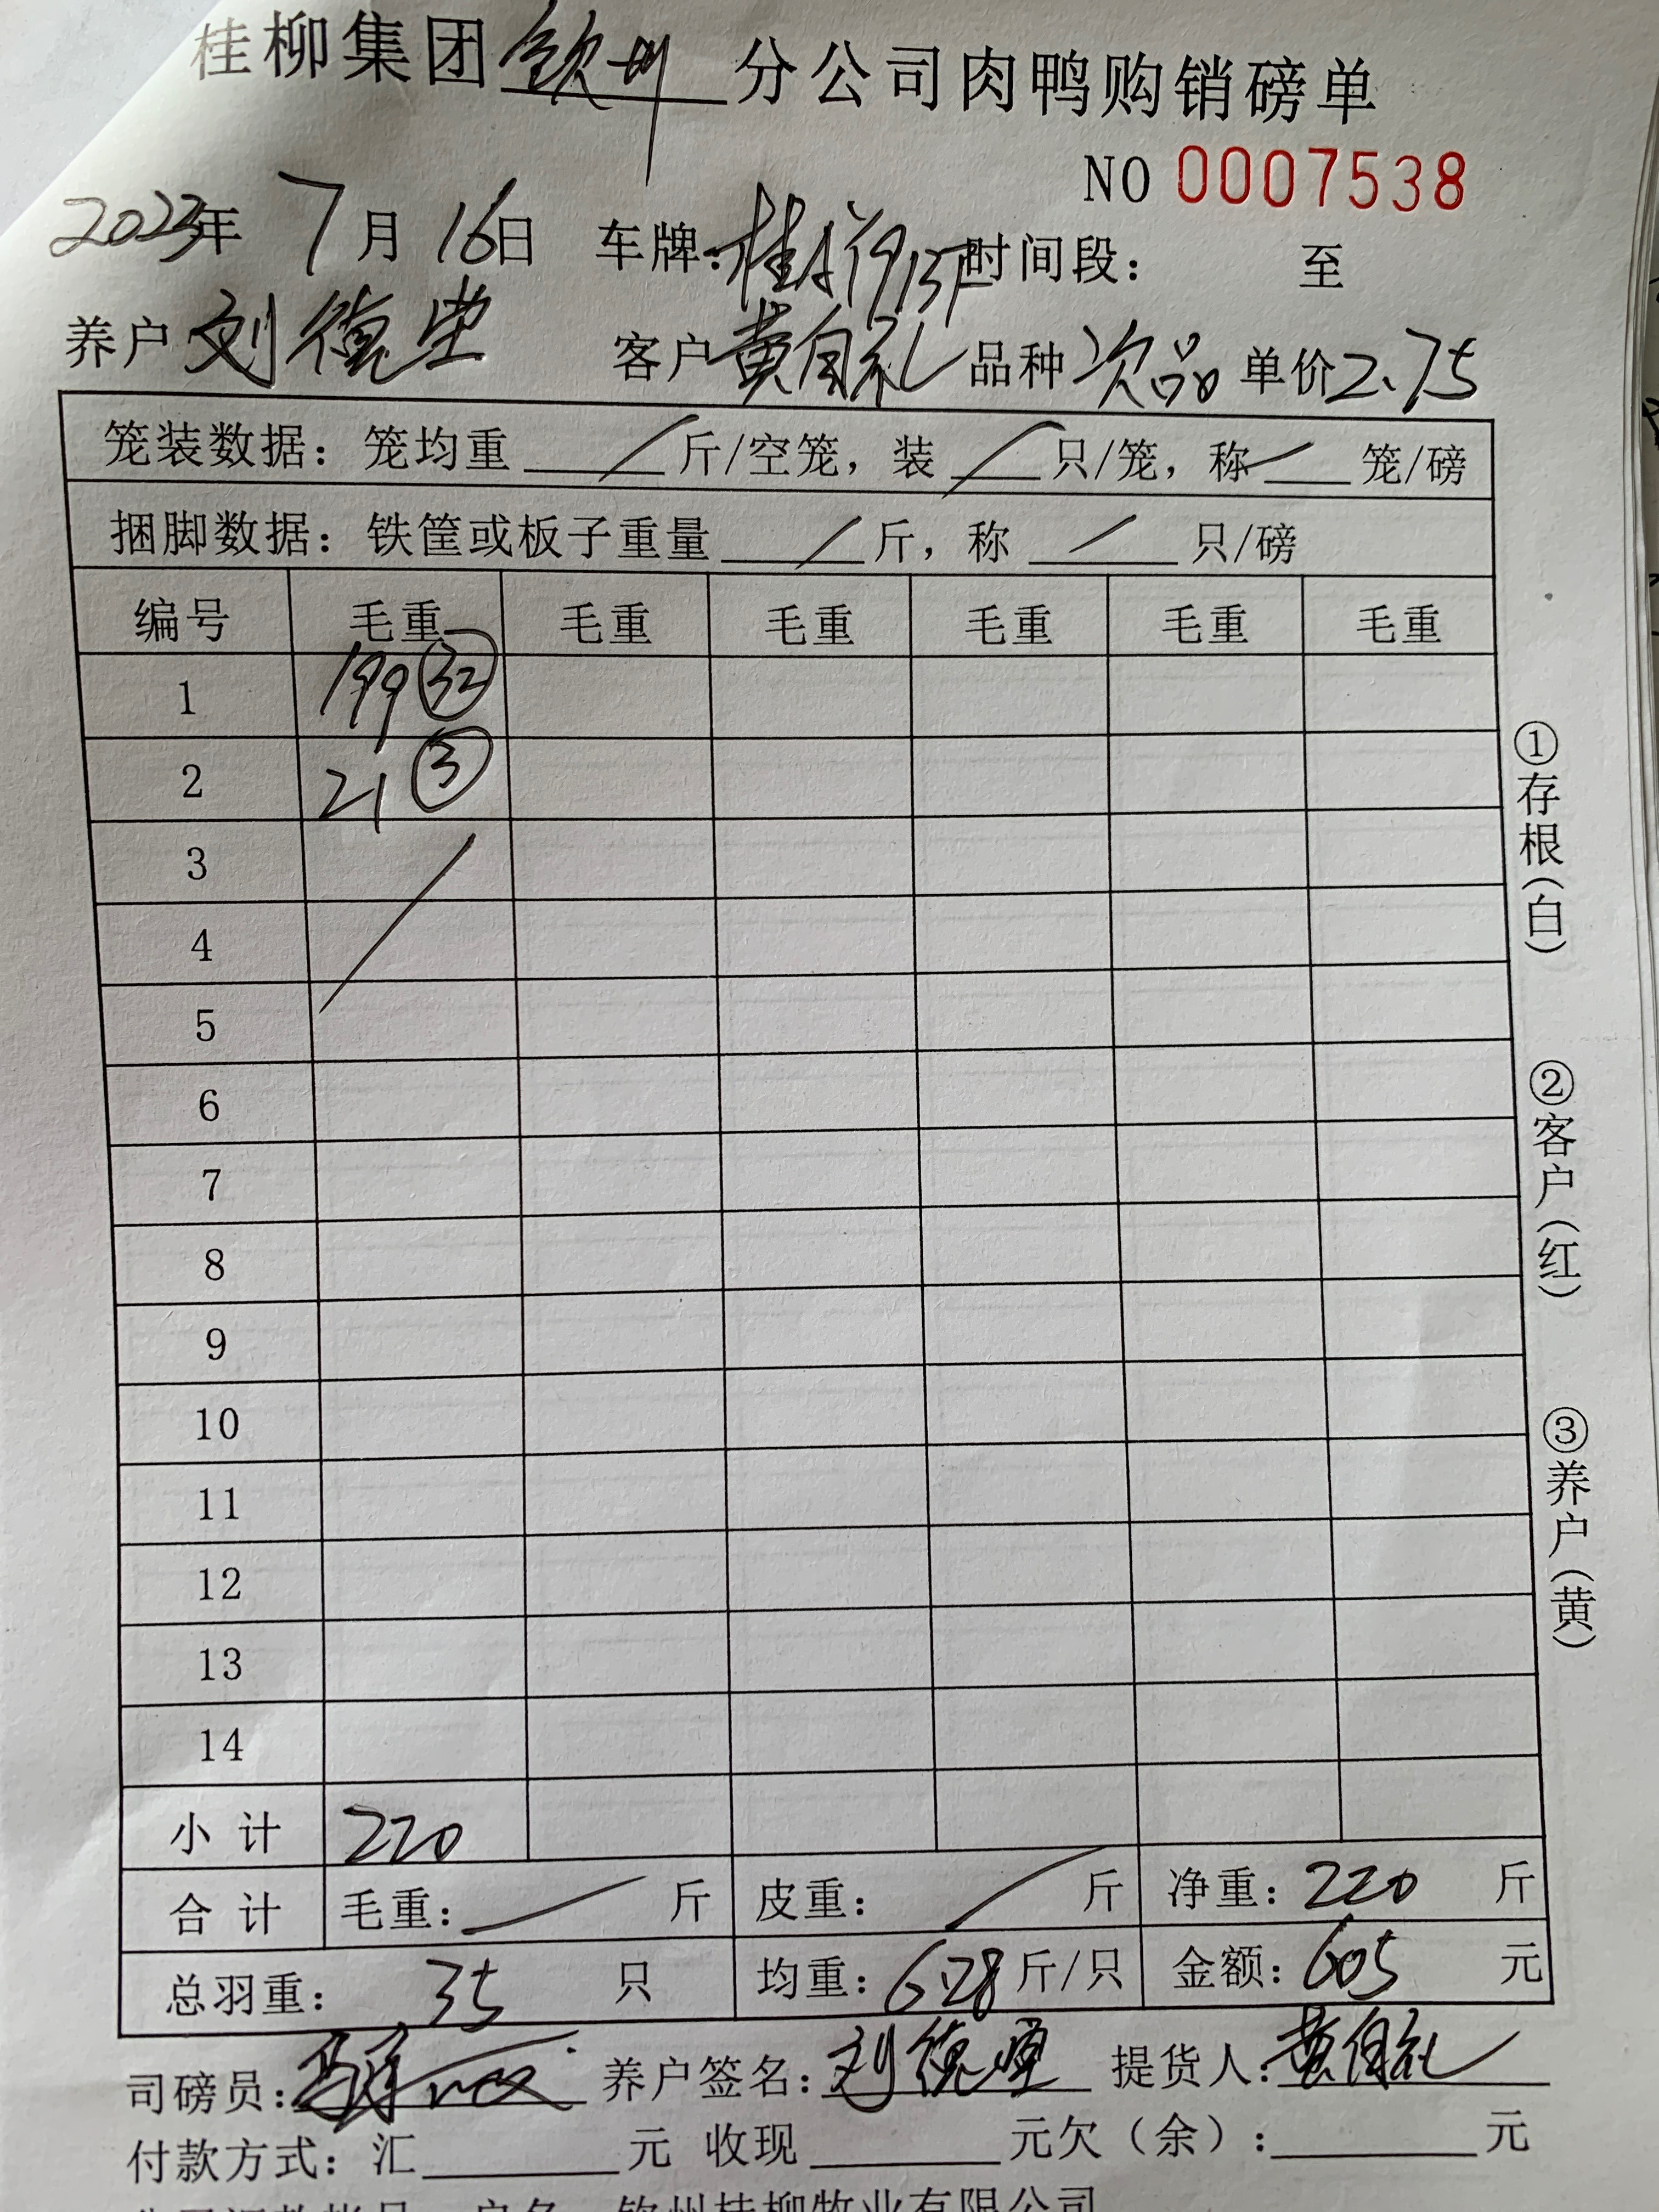 桂柳集团钦州分公司肉鸭购销磅单
NO 0007538
2023年 7月 16日 车牌: 时间段: 至
养户 刘德坚 客户 黄自礼 品种 次品 单价 2.75
笼装数据: 笼均重 / 斤/空笼, 装 / 只/笼, 称 / 笼/磅
捆脚数据: 铁筐或板子重量 / 斤, 称 / 只/磅
编号 毛重 毛重 毛重 毛重 毛重 毛重
1 199 ㉜
2 21 ③
3 /
4
5
6
7
8
9
10
11
12
13
14
小 计 220
合 计 毛重: / 斤 皮重: / 斤 净重: 220 斤
总羽重: 35 只 均重: 6.28 斤/只 金额: 605 元
司磅员: 养户签名: 刘德坚 提货人: 黄自礼
付款方式: 汇 元 收现 元欠(余): 元
户名 钦州桂柳牧业有限公司
①存根(白)
②客户(红)
③养户(黄)